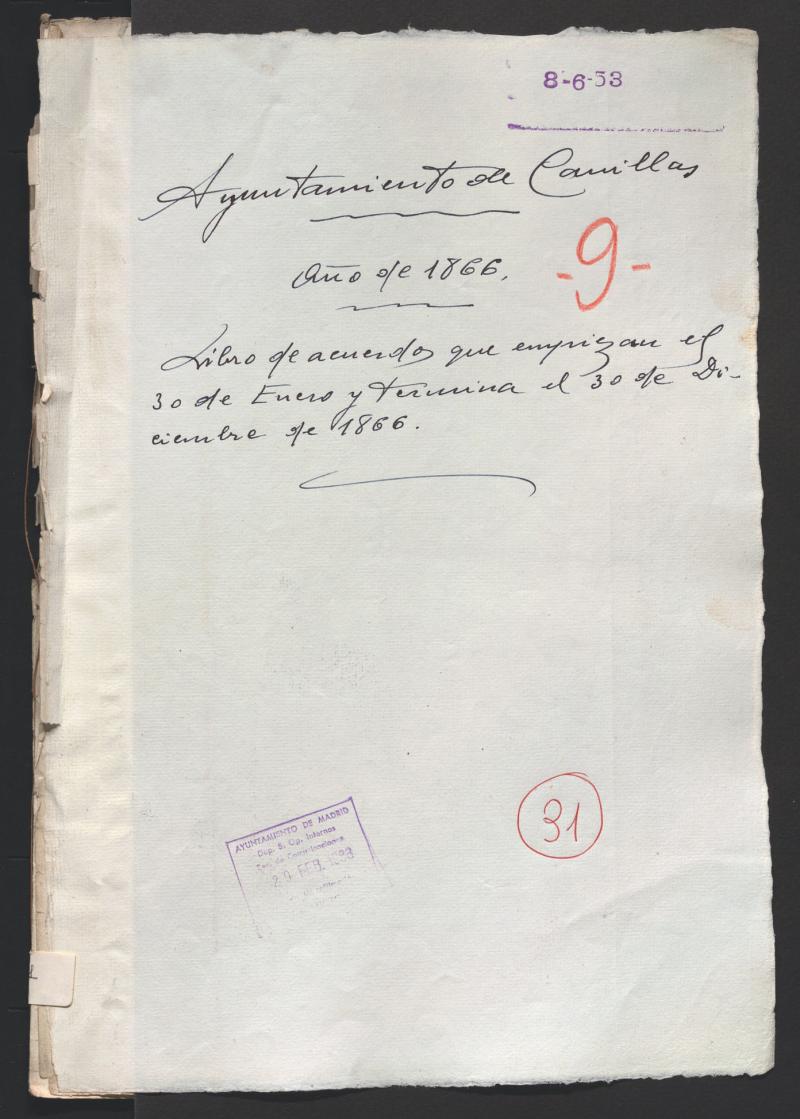 8-6-53
Ayuntamiento de Canillas
Año de 1866.
-9-
Libro de acuerdos que empiezan el
30 de Enero y termina el 30 de Di-
ciembre de 1866.
31
AYUNTAMIENTO DE MADRID
Dep. S. Op. Internos
de Contrataciones
FEB.